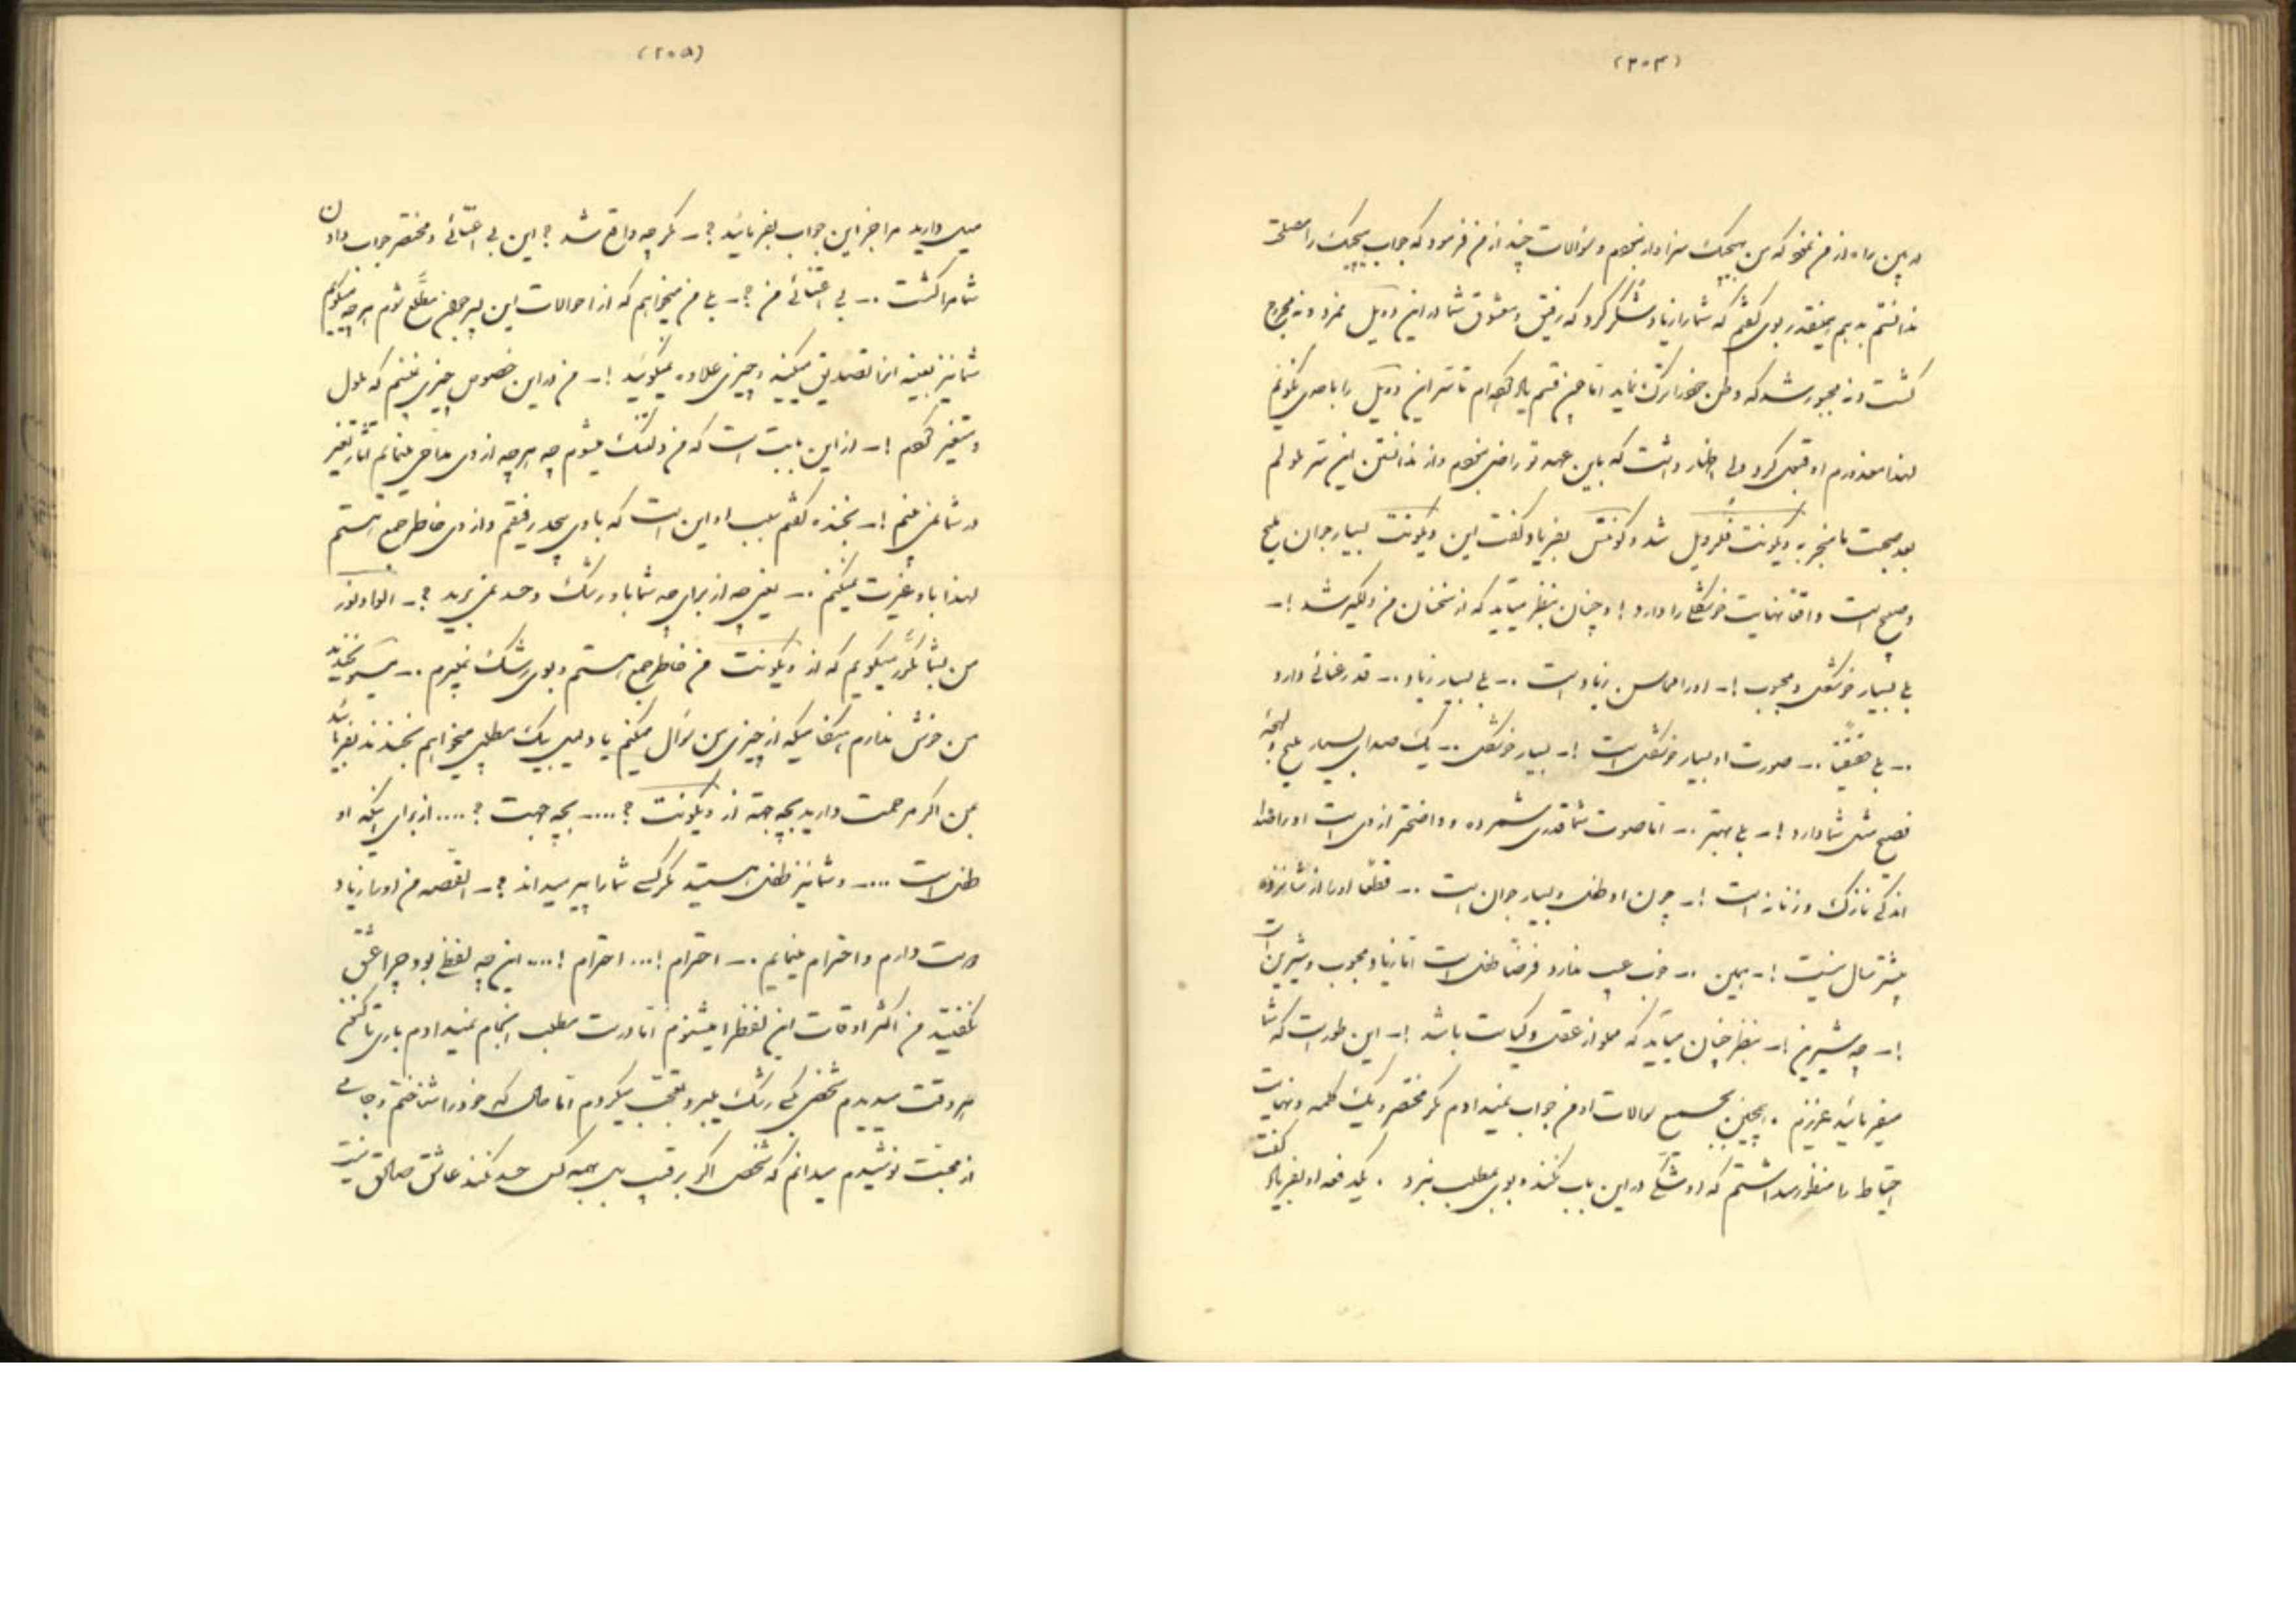 (۲۰۴)
در این راه از من نمود که من هیچیک سزاوار نبودم و سؤالات چند از من فرمود که جواب هیچیک را مصلحت
ندانستم بدهم همینقدر بوی گفتم که شما را زیاد متشکر کرد که رفیق و معشوق شما در این دوئل نمرد و نه مجروح
گشت و نه مجبور شد که وطن خود را ترک نماید اما چون قسم یاد کرده‌ام تا سر این دوئل را با احدی نگویم
لهذا معذورم او قبول کرد ولی اظهار داشت که باین عهد تو راضی نبودم و از ندانستن این سر ملولم
بعد صحبت ما منجر به ویکونت فلرویل شد و کونتس بفریاد گفت این ویکونت بسیار جوان ملیح
و صبیح است واقعا نهایت خوشگلی را دارد ! و چنان بنظر میآید که از سخنان من دلگیر شد !–
بلی بسیار خوشگل و محبوب !– او را الماس زیاد است .– بلی بسیار زیاد .– قد رعنائی دارد
.– بلی حقیقةً .– صورت او بسیار خوشگل است !– بسیار خوشگل .– یک صدای بسیار ملیح و لهجهٔ
فصیح مثل شما دارد !– بلی بهتر .– اما صوت شما قدری شمرده و واضحتر از وی است او را صدا
اندکی نازک و زنانه است !– چون او طفل و بسیار جوان است .– فقط او را از شانزده
بیشتر سال نیست !– همین .– خوب عیب ندارد فرضاً طفل است اما زیاد محبوب و شیرین است
!– چه شیرین !– بنظر چنان میآید که مملو از عقل و کیاست باشد !– این طور است که شما
میفرمائید عزیزم . همچنین بجمیع سؤالات او من جواب نمیدادم مگر مختصر و یک کلمه و نهایت
احتیاط را منظور میداشتم که او شکی در این باب نکند و بوی بمطلب نبرد . یکدفعه او بفریاد گفت
(۲۰۵)
میل دارید مرا جز این جواب بفرمائید ؟– مگر چه واقع شد ؟ این بی اعتنائی و مختصر جواب دادن
شما مرا کشت .– بی اعتنائی من ؟– بلی من میخواهم که از احوالات این پسر جوان مطلع شوم هر چه میگویم
شما نیز بعینه آنرا تصدیق میکنید و چیزی علاوه نمیگوئید !– من در این خصوص چیزی نگفتم که ملول
و متغیر گردم !– از این بابت است که من دلتنگ میشوم چه هر چه از وی مداحی مینمایم آثار تغیر
در شما نمی بینم !– بخنده گفتم سبب او این است که با وی بیحد رفیقم و از وی خاطر جمع هستم
لهذا باو غیرت نمیکنم .– یعنی چه از برای چه شما باو رشک و حسد نمی برید ؟– الوادنور
من بشما مکرر میگویم که از ویکونت من خاطر جمع هستم و بوی رشک نمیبرم .– میسو بخندید
من خوش ندارم هنگامیکه از چیزی من سؤال میکنم یا دلیل بیک مطلبی میخواهم بخندند بفرمائید
بمن اگر مرحمت دارید بچه جهة از ویکونت ؟ .... بچه جهت ؟ .... از برای اینکه او
طفل است .... و شما نیز طفل هستید مگر کسی شما را پیر میداند ؟– القصه من او را زیاد
دوست دارم و احترام مینمایم .– احترام ! ... احترام ! .... این چه لفظی بود چرا عشق
نگفتید من اکثر اوقات این لفظ را میشنوم اما درست مطلب انجام نمیدادم باری تا کنون
هر وقت میدیدم شخصی کسی رشک میبرد تعجب میکردم اما حال که خود را شناختم و جامی
از محبت نوشیدم میدانم که شخص اگر بر رقیب بل بهمه کس حسد نکند عاشق صادق نیست